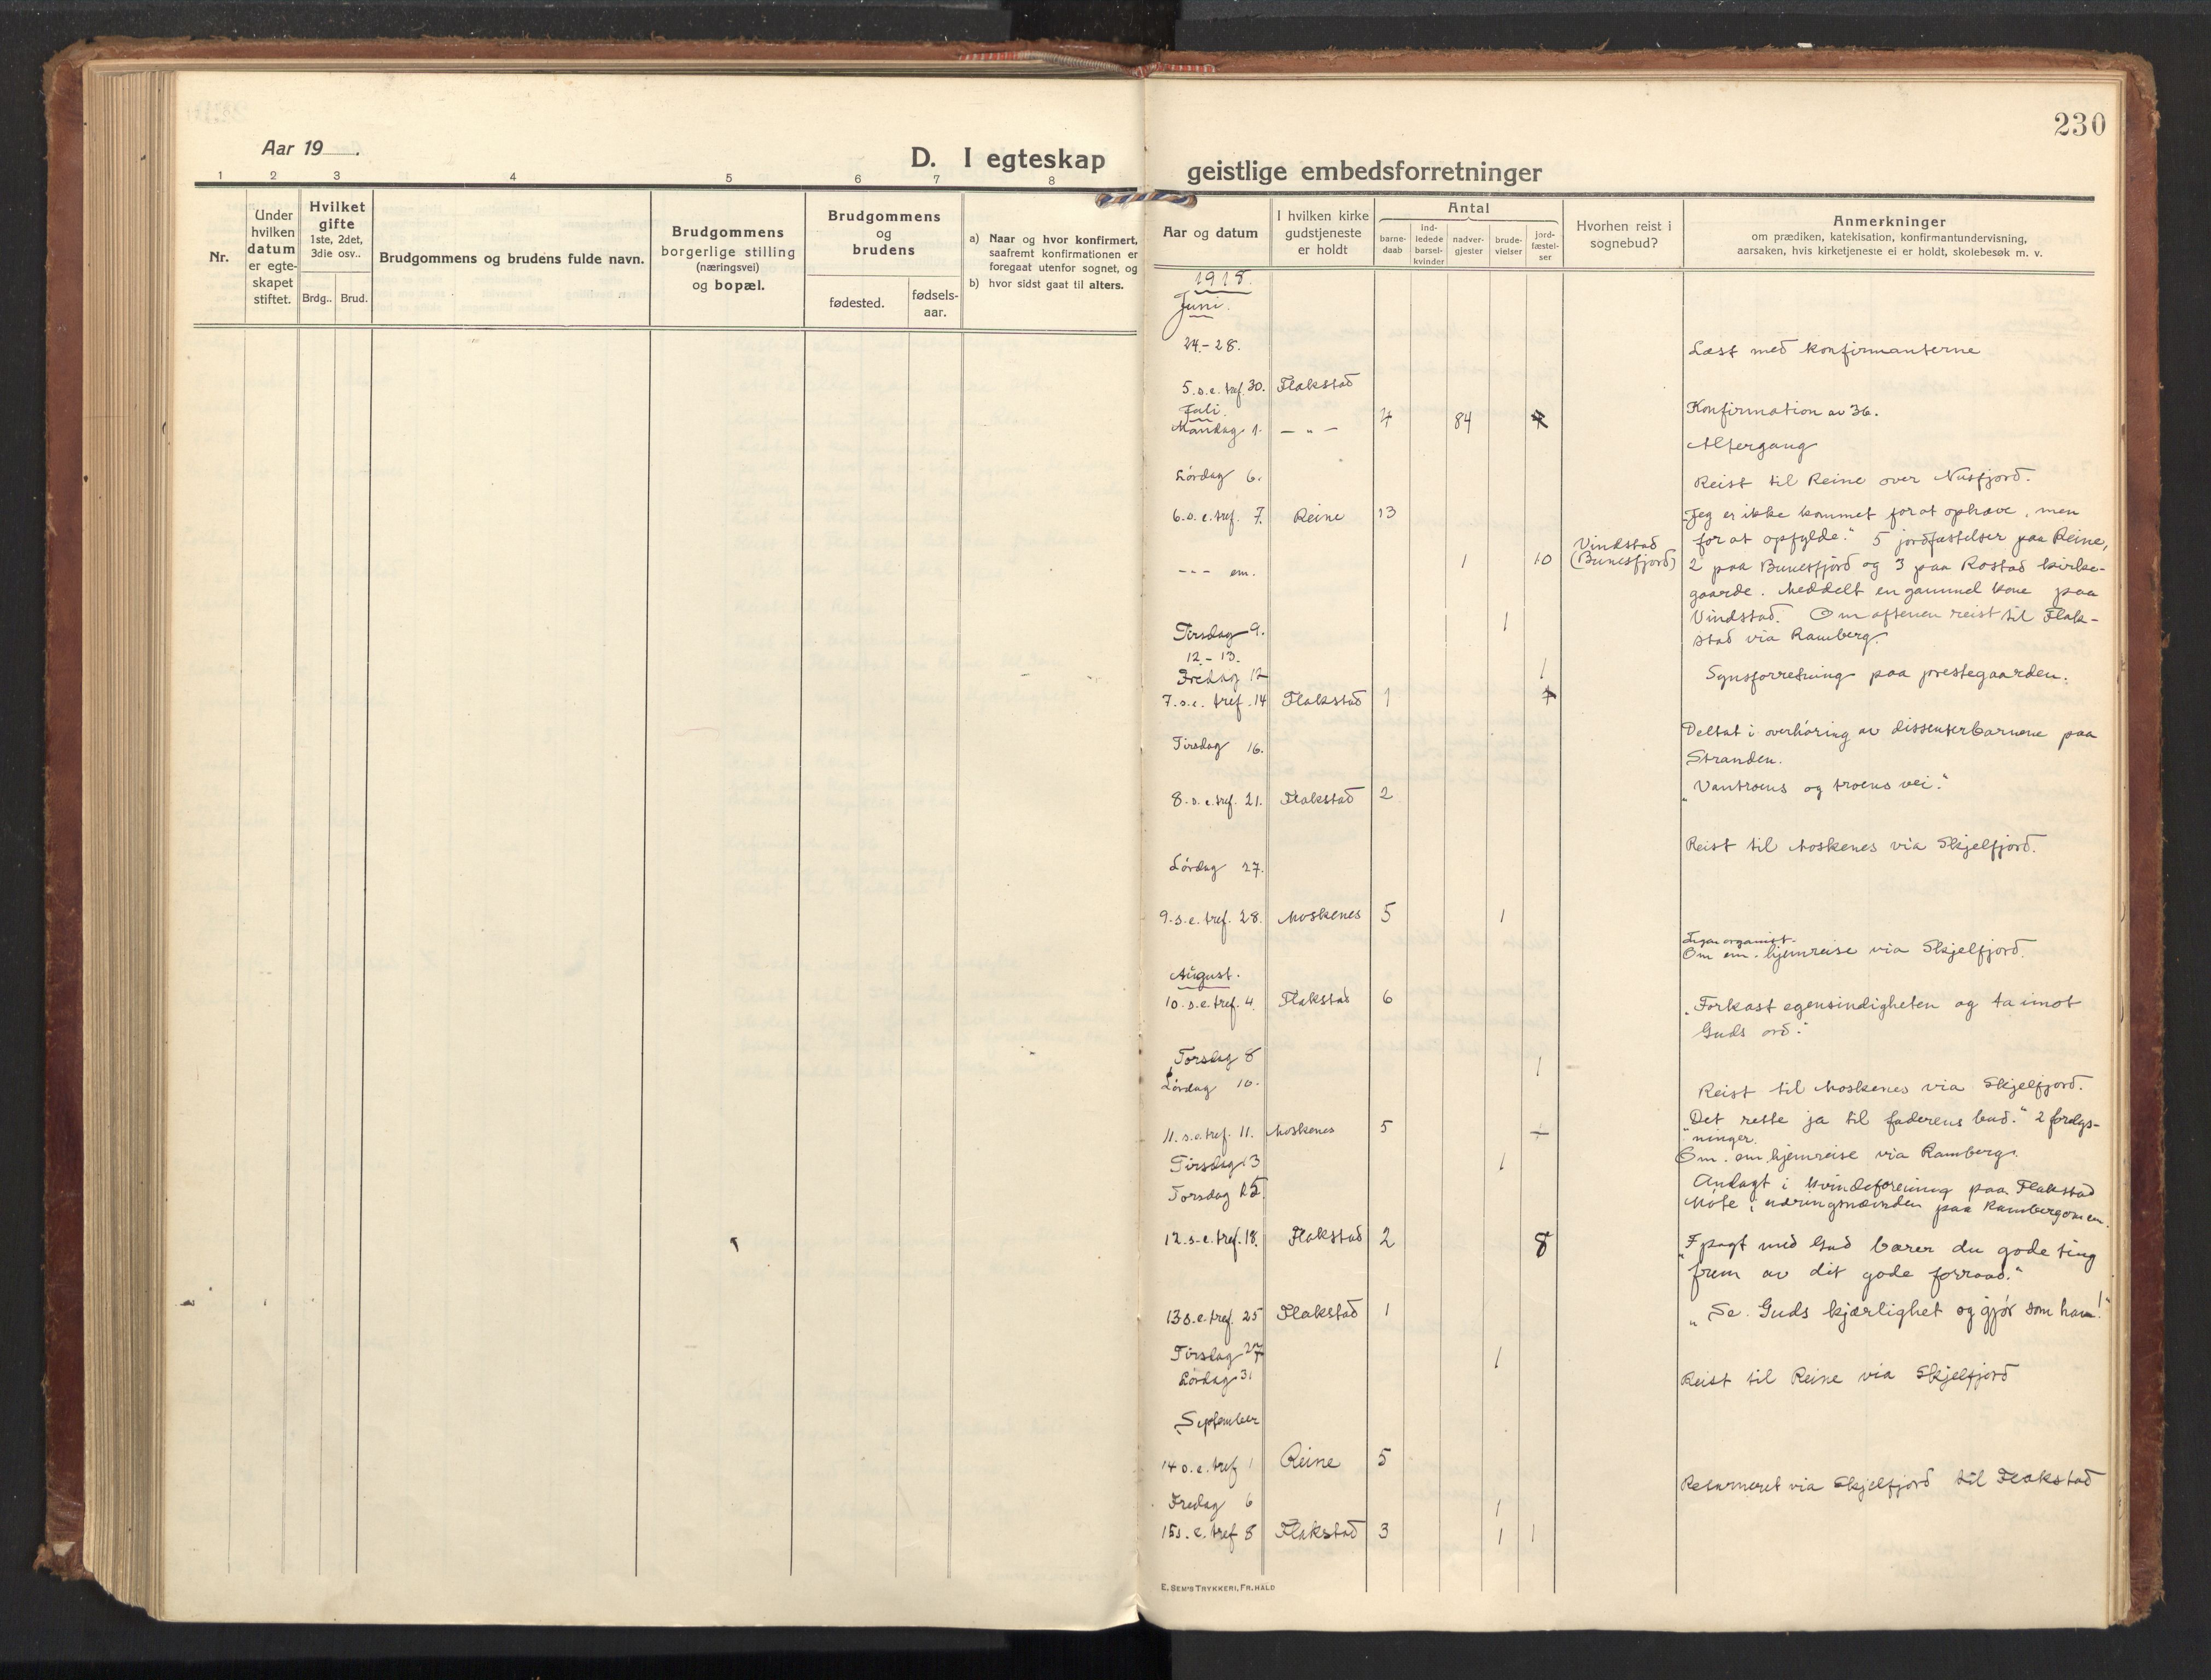 Aar 19 .
D. I egteskap
1 2 3 4 5 6 7 8
Nr.
Under hvilken datum er egte-skapet stiftet.
Hvilket gifte
1ste, 2det, 3die osv..
Brdg.. Brud.
Brudgommens og brudens fulde navn.
Brudgommens borgerlige stilling (næringsvei) og bopæl.
Brudgommens og brudens
fødested.
fødsels-aar.
a) Naar og hvor konfirmert, saafremt konfirmationen er foregaat utenfor sognet, og
b) hvor sidst gaat til alters.
230
geistlige embedsforretninger
Aar og datum
I hvilken kirke gudstjeneste er holdt
Antal
barne-daab
ind-ledede barsel-kvinder
nadver-gjester
brude-vielser
jord-fæstel-ser
Hvorhen reist i sognebud?
Anmerkninger
om prædiken, katekisation, konfirmantundervisning,
aarsaken, hvis kirketjeneste ei er holdt, skolebesøk m. v.
1918.
Juni.
24.-28. Læst med konfirmanterne
5.s.e.tref. 30. Flakstad
Konfirmation av 36.
Juli.
Mandag 1. — " — 4 84
Altergang
Lördag 6. Reist til Reine over Nusfjord.
6.s.e.tref. 7. Reine 13 "Jeg er ikke kommet for at ophæve, men
for at opfylde." 5 jordfæstelser paa Reine,
--- em. 1 10 Vindstad (Bunesfjord) 2 paa Bunesfjord og 3 paa Rostad kirke-
gaarde. Meddelt en gammel kone paa
Vindstad. Om aftenen reist til Flak-
stad via Ramberg.
Tirsdag 9. 1
12.-13. Synsforretning paa prestegaarden.
Fredag 12 1
7.s.e. tref. 14 Flakstad 1
Tirsdag 16. Deltat i overhöring av dissenterbarnene paa
Stranden.
8.s.e.tref. 21. Flakstad 2 "Vantroens og troens vei."
Lördag 27. Reist til Moskenes via Skjelfjord.
9.s.e.tref. 28. Moskenes 5 1
Ingen organist.
Om em. hjemreise via Skjelfjord.
August.
10.s.e.tref. 4. Flakstad 6 "Forkast egensindigheten og ta imot
Guds ord."
Torsdag 8 1
Lördag 10. Reist til Moskenes via Skjelfjord.
11.s.e.tref. 11. Moskenes 5 "Det rette ja til faderens bud." 2 forlys-
ninger.
Om em. hjemreise via Ramberg.
Tirsdag 13 1
Torsdag 15. Andagt i kvindeforening paa Flakstad
Möte i næringsnævnden paa Ramberg om em.
12.s.e.tref. 18. Flakstad 2 8 "I pagt med Gud bærer du gode ting
frem av dit gode forraad."
13s.e.tref. 25 Flakstad 1 "Se Guds kjærlighet og gjör som han!"
Tirsdag 27 1
Lördag 31 Reist til Reine via Skjelfjord
September
14 s.e.tref 1 Reine 5
Returneret via Skjelfjord til Flakstad
Fredag 6 1
15s.e.tref 8 Flakstad 3 1 1
E. SEM'S TRYKKERI, FR.HALD